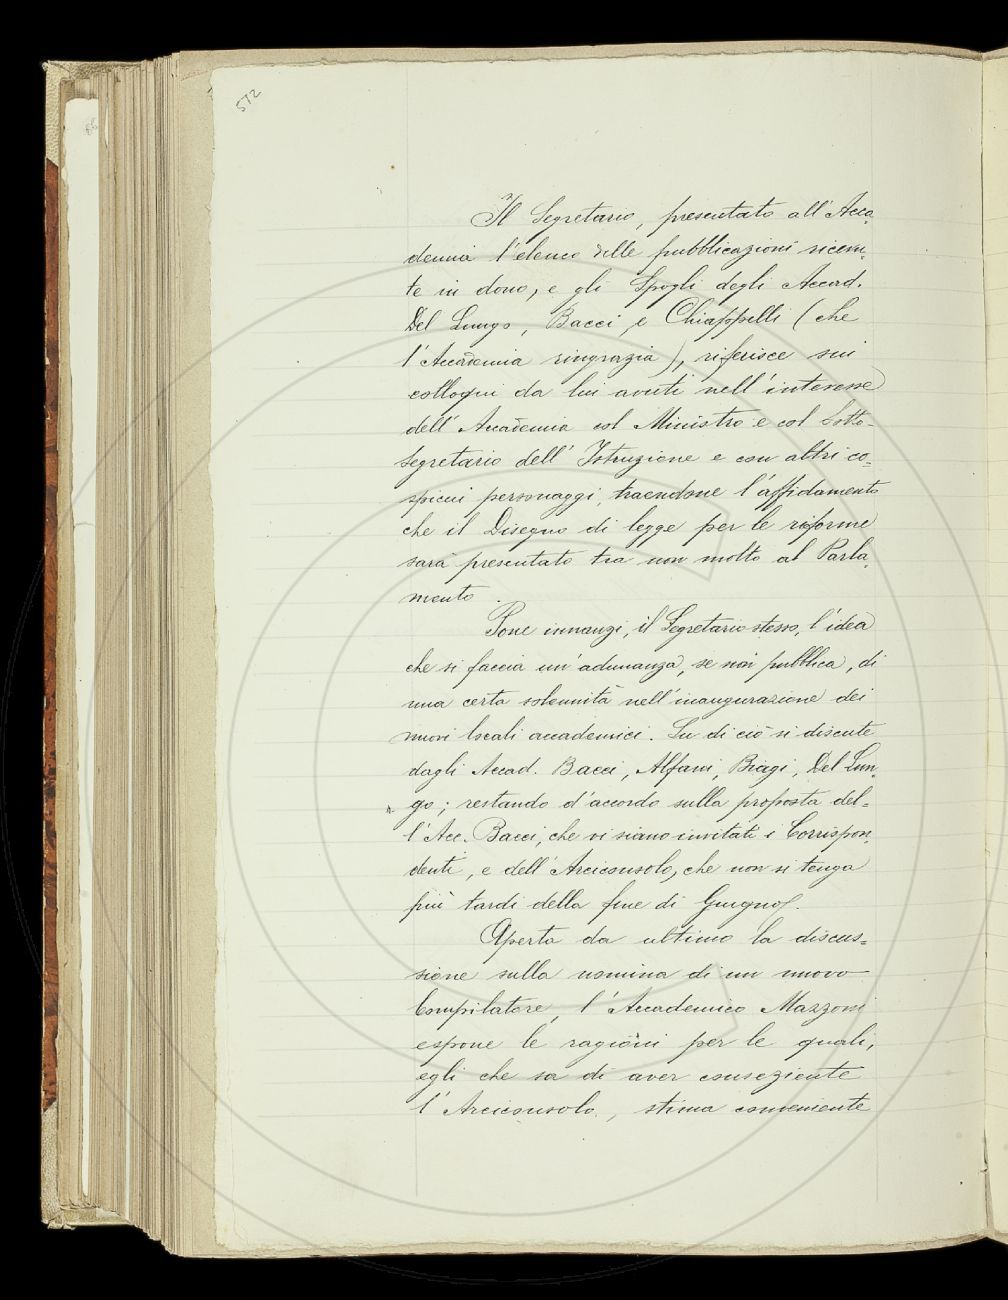 512
Il Segretario, presentato all'Acca-
demia l'elenco delle pubblicazioni ricevu-
te in dono, e gli Spogli degli Accad.
Del Lungo, Bacci, e Chiappelli (che
l'Accademia ringrazia), riferisce sui
colloqui da lui avuti nell'interesse
dell'Accademia col Ministro e col Sotto-
segretario dell'Istruzione e con altri co=
spicui personaggi, traendone l'affidamento
che il Disegno di legge per le riforme
sarà presentato tra non molto al Parla-
mento.
Pone innanzi, il Segretario stesso, l'idea
che si faccia un'adunanza, se non pubblica, di
una certa solennità nell'inaugurazione dei
nuovi locali accademici. Su di ciò si discute
dagli Accad. Bacci, Alfani, Biagi, Del Lun-
go; restando d'accordo sulla proposta del=
l'Acc. Bacci, che vi siano invitati i Corrispon-
denti, e dell'Arciconsolo, che non si tenga
più tardi della fine di Giugno.
Aperta da ultimo la discus=
sione sulla nomina di un nuovo
Compilatore, l'Accademico Mazzoni
espone le ragioni per le quali,
egli che sa di aver consenziente
l'Arciconsolo, stima conveniente